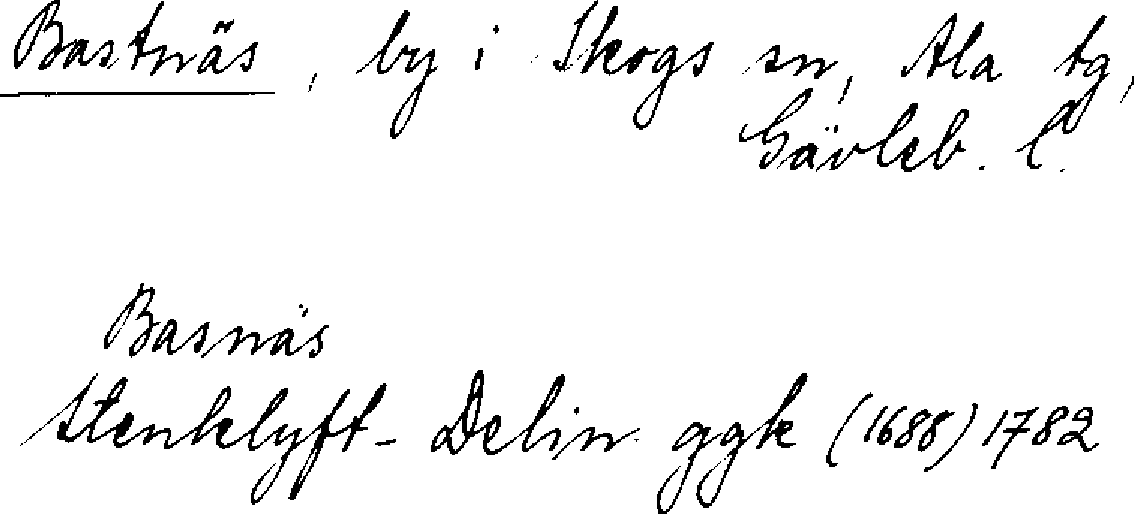 Bastnäs, by i Skogs sn, Ala tg,
Gävleb. l.
Basnäs
Stenklyft- Delin ggk (1688) 1782